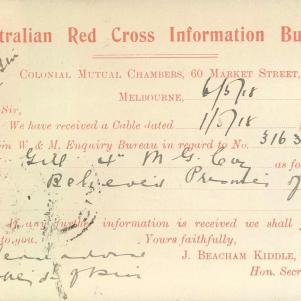 stralian Red Cross Information Bu
COLONIAL MUTUAL CHAMBERS, 60 MARKET STREET,
MELBOURNE, 6/5/18
Sir,
We have received a Cable dated 1/5/18
m W. & M. Enquiry Bureau in regard to No. 3163
Gill 4th M. G. Coy as fo
Believed Prisoner of
If any further information is received we shall
to you. Yours faithfully,
J. BEACHAM KIDDLE,
Hon. Secr